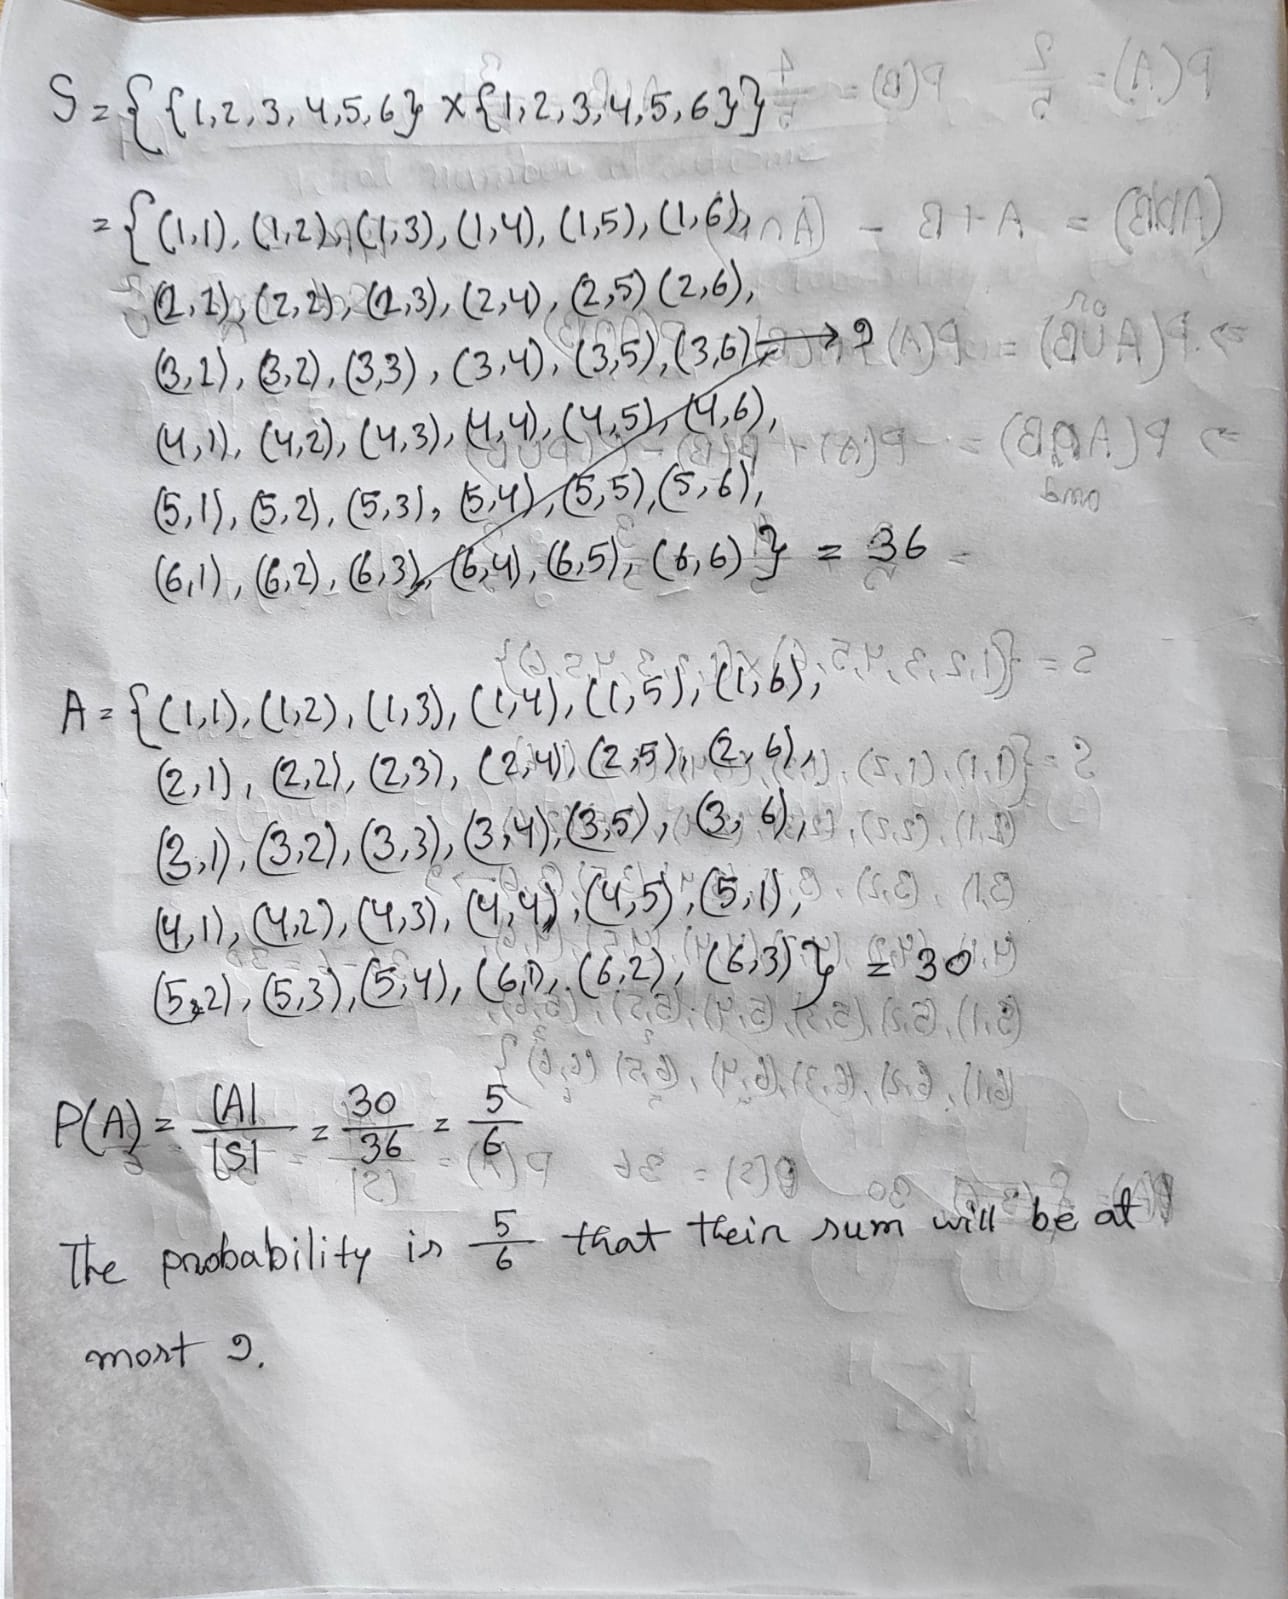 S = { {1,2,3,4,5,6} × {1,2,3,4,5,6} }
= { (1,1), (1,2), (1,3), (1,4), (1,5), (1,6),
(2,1), (2,2), (2,3), (2,4), (2,5) (2,6),
(3,1), (3,2), (3,3), (3,4), (3,5), (3,6) → 9
(4,1), (4,2), (4,3), (4,4), (4,5), (4,6),
(5,1), (5,2), (5,3), (5,4), (5,5), (5,6),
(6,1), (6,2), (6,3), (6,4), (6,5), (6,6) } = 36
A = { (1,1), (1,2), (1,3), (1,4), (1,5), (1,6),
(2,1), (2,2), (2,3), (2,4), (2,5), (2,6),
(3,1), (3,2), (3,3), (3,4), (3,5), (3,6),
(4,1), (4,2), (4,3), (4,4), (4,5), (5,1),
(5,2), (5,3), (5,4), (6,1), (6,2), (6,3) } = 30
P(A) = |A|/|S| = 30/36 = 5/6
The probability is 5/6 that their sum will be at
most 9.